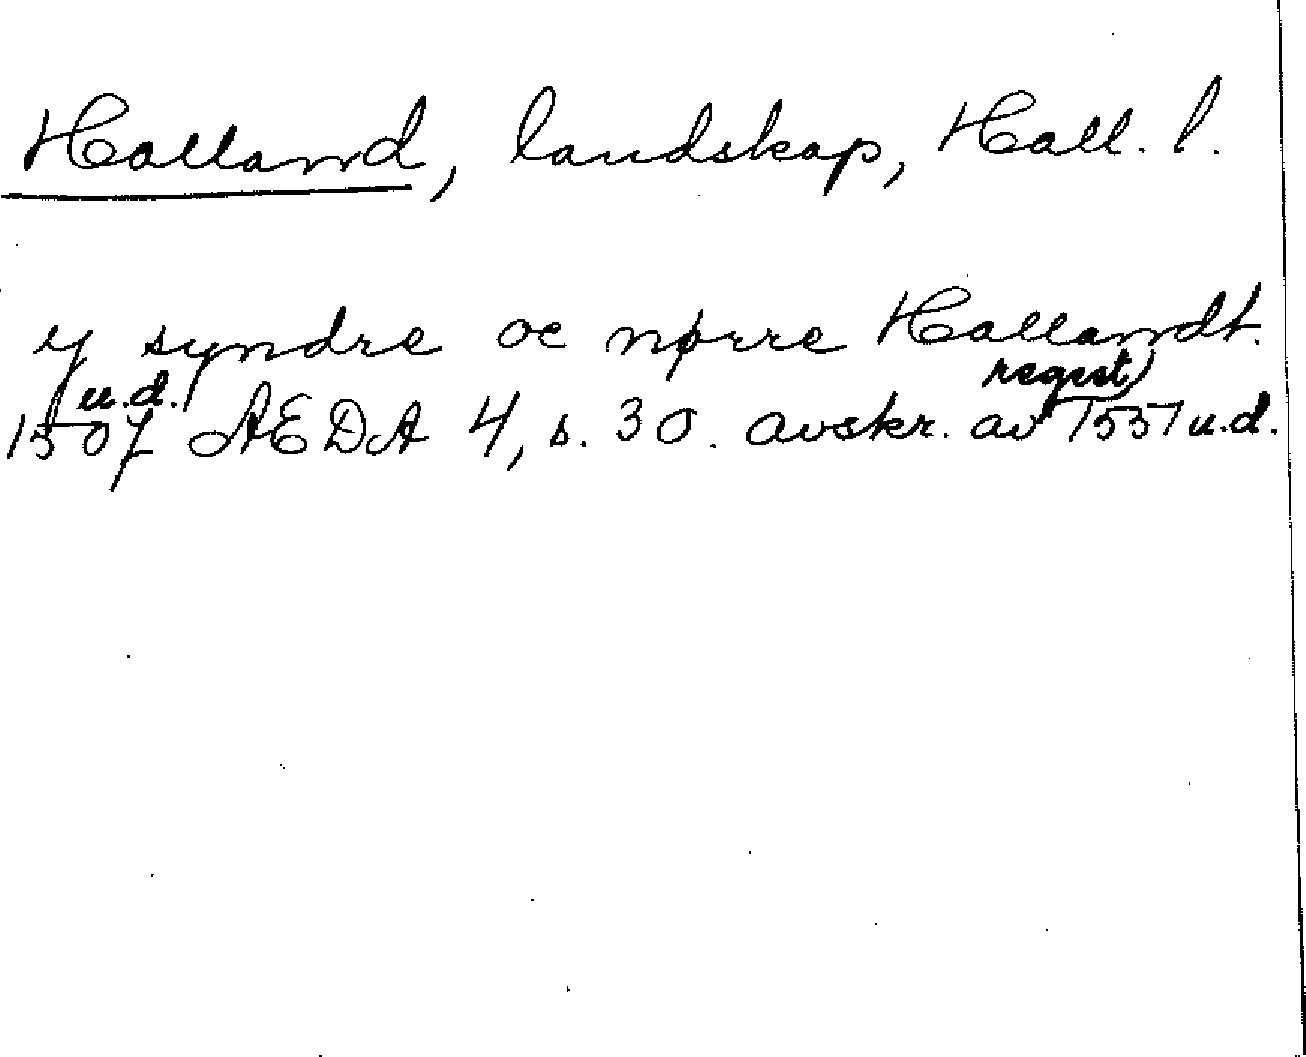 Halland, landskap, Hall. l.
y syndre oc nørre Hallandt.
u.d. regist
1507 AEDA 4, s. 30. avskr. av 1557 u.d.